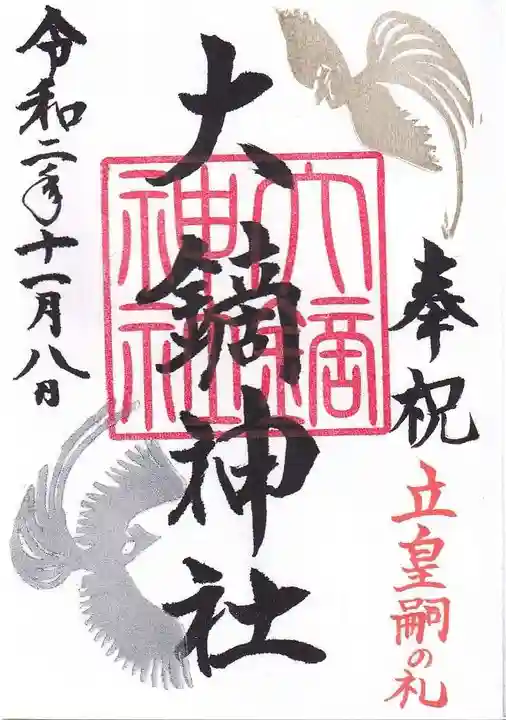 奉祝
立皇嗣の礼
大鏑神社
大鏑神社
令和二年十一月八日